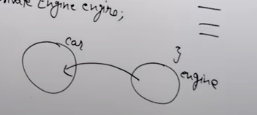 Engine engine;
car
}
engine